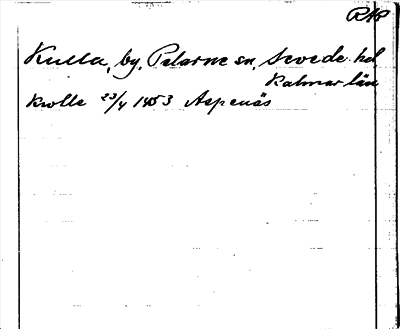 RAP
Kulla, by, Pelarne sn, Sevede hd
Kalmar län
Kwlle 23/4 1453 Aspenäs